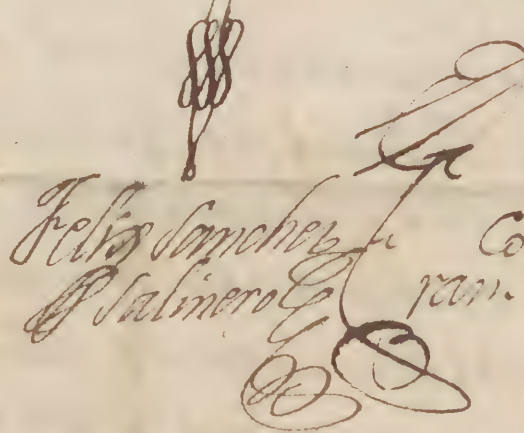 Felix Sanchez Co
Salinero ran.